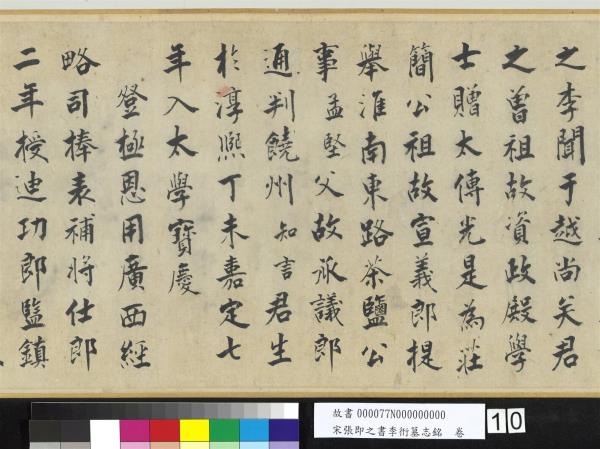 之李聞于越尚矣君
之曾祖故資政殿學
士贈太傅光是為莊
簡公祖故宣義郎提
舉淮南東路茶鹽公
事孟堅父故承議郎
通判饒州知言君生
於淳熙丁未嘉定七
年入太學寶慶
登極恩用廣西經
略司捧表補將仕郎
二年授迪功郎監鎮
故書 000077N000000000
宋張即之書李衎墓志銘 卷
10